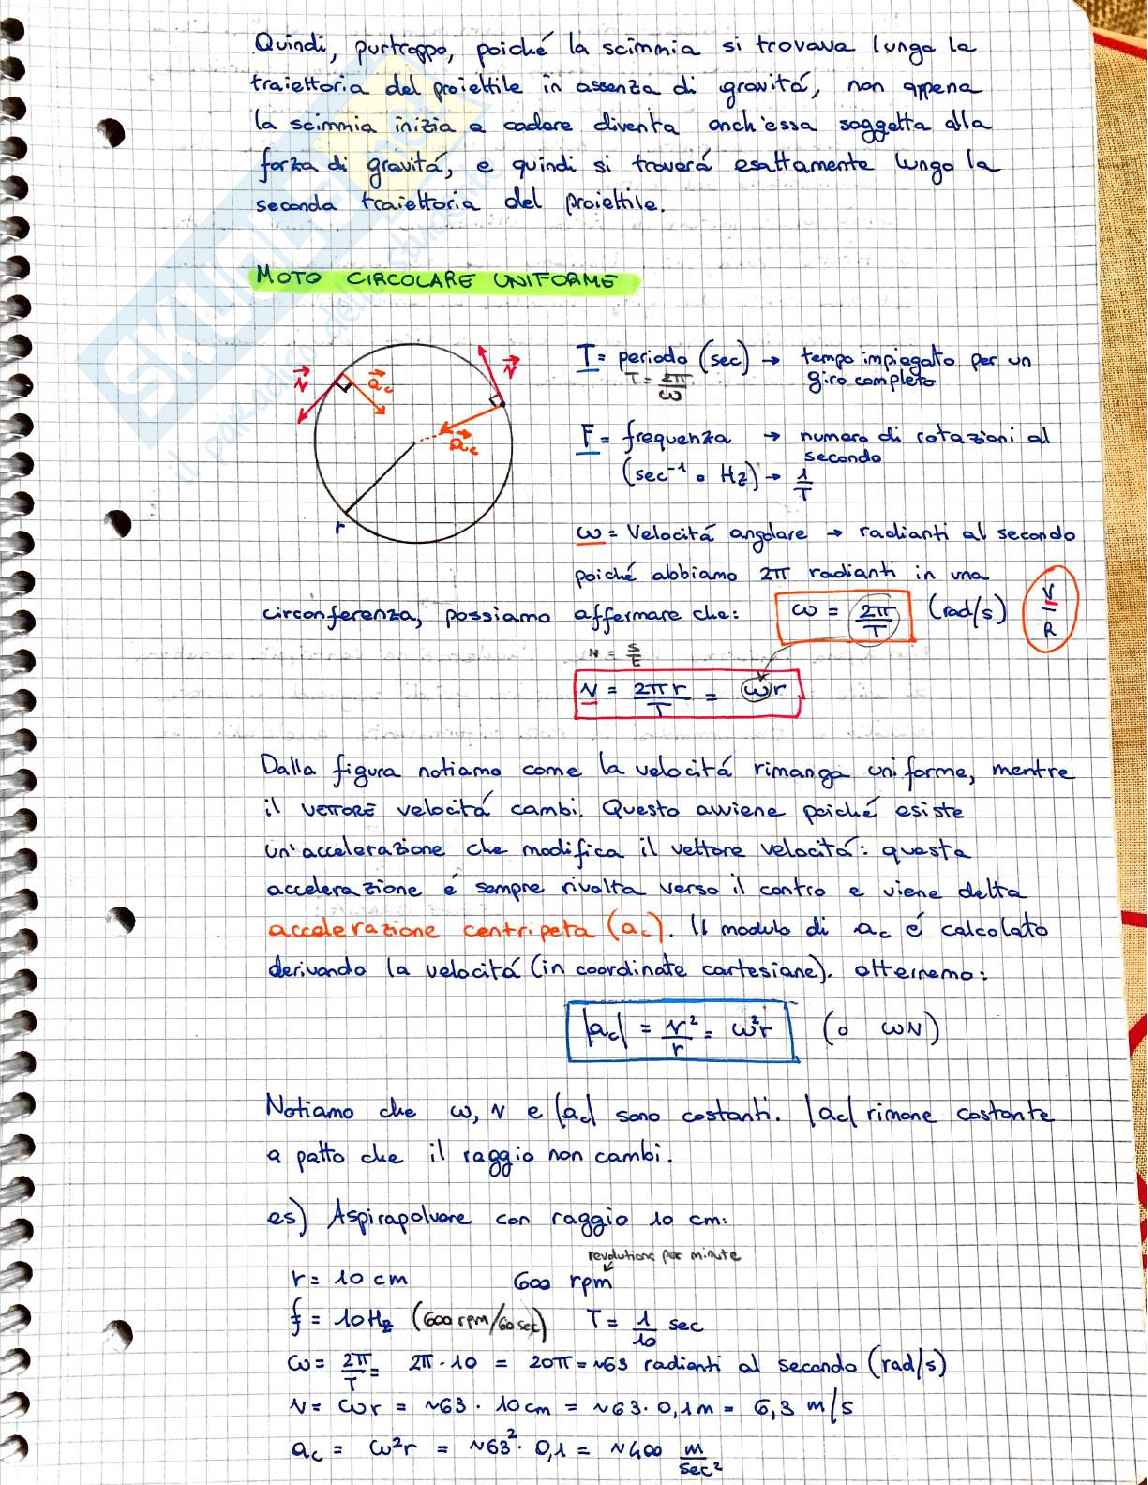 Quindi, purtroppo, poiché la scimmia si trovava lungo la
traiettoria del proiettile in assenza di gravitá, non appena
la scimmia inizia a cadere diventa anch'essa soggetta alla
forza di gravitá, e quindi si troverá esattamente lungo la
seconda traiettoria del proiettile.
MOTO CIRCOLARE UNIFORME
T = periodo (sec) → tempo impiegato per un
giro completo
T = 2π/ω
F = frequenza → numero di rotazioni al
secondo
(sec⁻¹ o Hz) → 1/T
v
ac
v
ac
r
ω = Velocitá angolare → radianti al secondo
poiché abbiamo 2π radianti in una
circonferenza, possiamo affermare che: ω = 2π/T (rad/s) V/R
v = s/t
v = 2πr/T = ωr
Dalla figura notiamo come la velocitá rimanga uniforme, mentre
il VETTORE velocitá cambi. Questo avviene poiché esiste
un'accelerazione che modifica il vettore velocitá: questa
accelerazione é sempre rivolta verso il centro e viene detta
accelerazione centripeta (ac). Il modulo di ac é calcolato
derivando la velocitá (in coordinate cartesiane). otterremo:
|ac| = v²/r = ω²r (o ωv)
Notiamo che ω, v e |ac| sono costanti. |ac| rimane costante
a patto che il raggio non cambi.
es) Aspirapolvere con raggio 10 cm:
revolutions per minute
r = 10 cm 600 rpm
f = 10Hz (600rpm/60sec) T = 1/10 sec
ω = 2π/T = 2π · 10 = 20π = ~63 radianti al secondo (rad/s)
v = ωr = ~63 · 10cm = ~63 · 0,1m = 6,3 m/s
ac = ω²r = ~63² · 0,1 = ~400 m/sec²